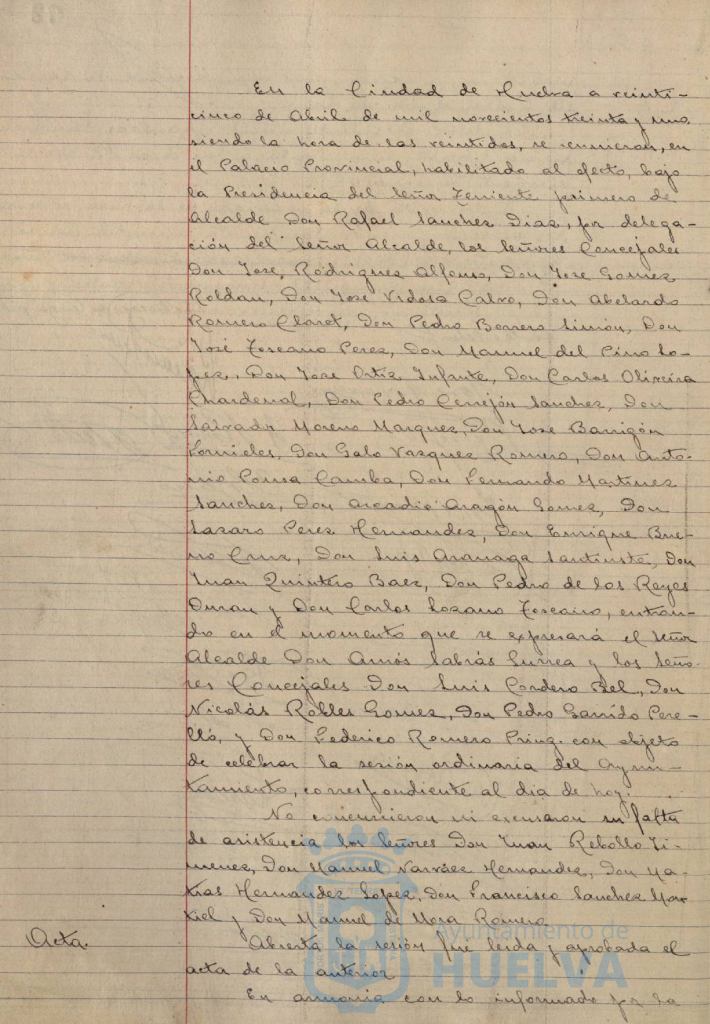 En la Ciudad de Huelva a veinti-
cinco de Abril de mil novecientos treinta y uno,
siendo la hora de las veintidos, se reunieron, en
el Palacio Provincial, habilitado al efecto, bajo
la Presidencia del Señor Teniente primero de
Alcalde Don Rafael Sanchez Diaz, por delega-
ción del Señor Alcalde, los Señores Concejales
Don Jose Rodriguez Alfonso, Don Jose Gomez
Roldan, Don José Vidosa Calvo, Don Abelardo
Romero Claret, Don Pedro Borrero Limón, Don
José Toscano Perez, Don Manuel del Pino Lo-
pez, Don Jose Ortiz Infante, Don Carlos Oliveira
Chardenal, Don Pedro Cerrejón Sanchez, Don
Salvador Moreno Marquez, Don Jose Barrigón
Fornieles, Don Galo Vazquez Romero, Don Anto-
nio Ponsa Camba, Don Fernando Martinez
Sanchez, Don Arcadio Aragón Gomez, Don
Lazaro Perez Hernandez, Don Enrique Bue-
no Cruz, Don Luis Don
Juan Quintero Baez, Don Pedro de los Reyes
Duran y Don Carlos Lozano Toscano, entran-
do en el momento que se expresará el Señor
Alcalde Don Amós Sabrás Gurrea y los Seño-
res Concejales Don Luis Cordero Bel, Don
Nicolás Robles Gomez, Don Pedro Garrido Pere-
lló, y Don Federico Romero con objeto
de celebrar la sesión ordinaria del Ayun-
tamiento, correspondiente al dia de hoy.
No concurrieron ni excusaron su falta
de asistencia los Señores Don Juan Rebollo Ji-
menez, Don Manuel Narváez Hernandez, Don Ma-
tias Hernandez Lopez, Don Francisco Sanchez Mar-
tiel y Don Manuel de Mora Romero
Acta. Abierta la sesión fué leida y aprobada el
acta de la anterior
En armonia con lo informado por la
Ayuntamiento de
HUELVA